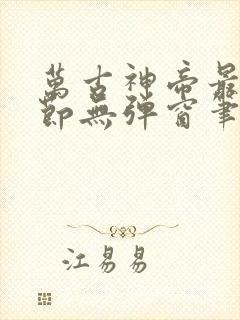 萬古神帝最
節無彈窗筆
江易易